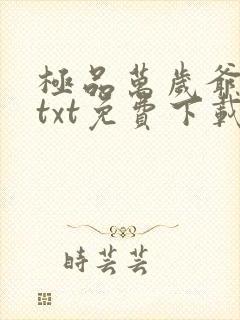 極品萬歲爺
txt免費下載
時芸芸